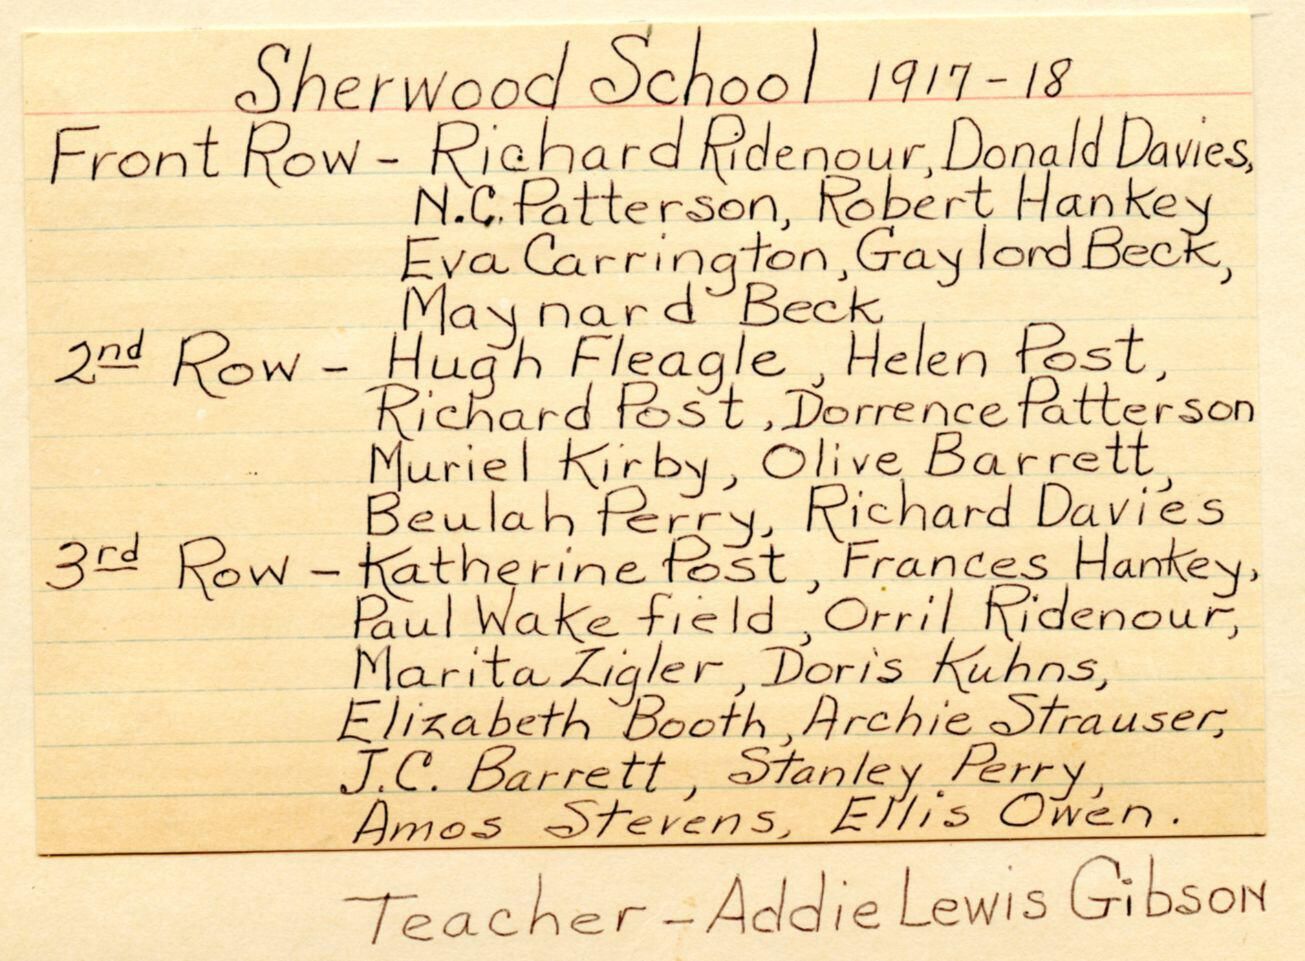 Sherwood School 1917-18
Front Row - Richard Ridenour, Donald Davies,
N.C. Patterson, Robert Hankey
Eva Carrington, Gaylord Beck,
Maynard Beck
2nd Row - Hugh Fleagle, Helen Post,
Richard Post, Dorrence Patterson
Muriel Kirby, Olive Barrett,
Beulah Perry, Richard Davies
3rd Row - Katherine Post, Frances Hankey,
Paul Wakefield, Orril Ridenour,
Marita Zigler, Doris Kuhns,
Elizabeth Booth, Archie Strauser,
J.C. Barrett, Stanley Perry,
Amos Stevens, Ellis Owen.
Teacher - Addie Lewis Gibson